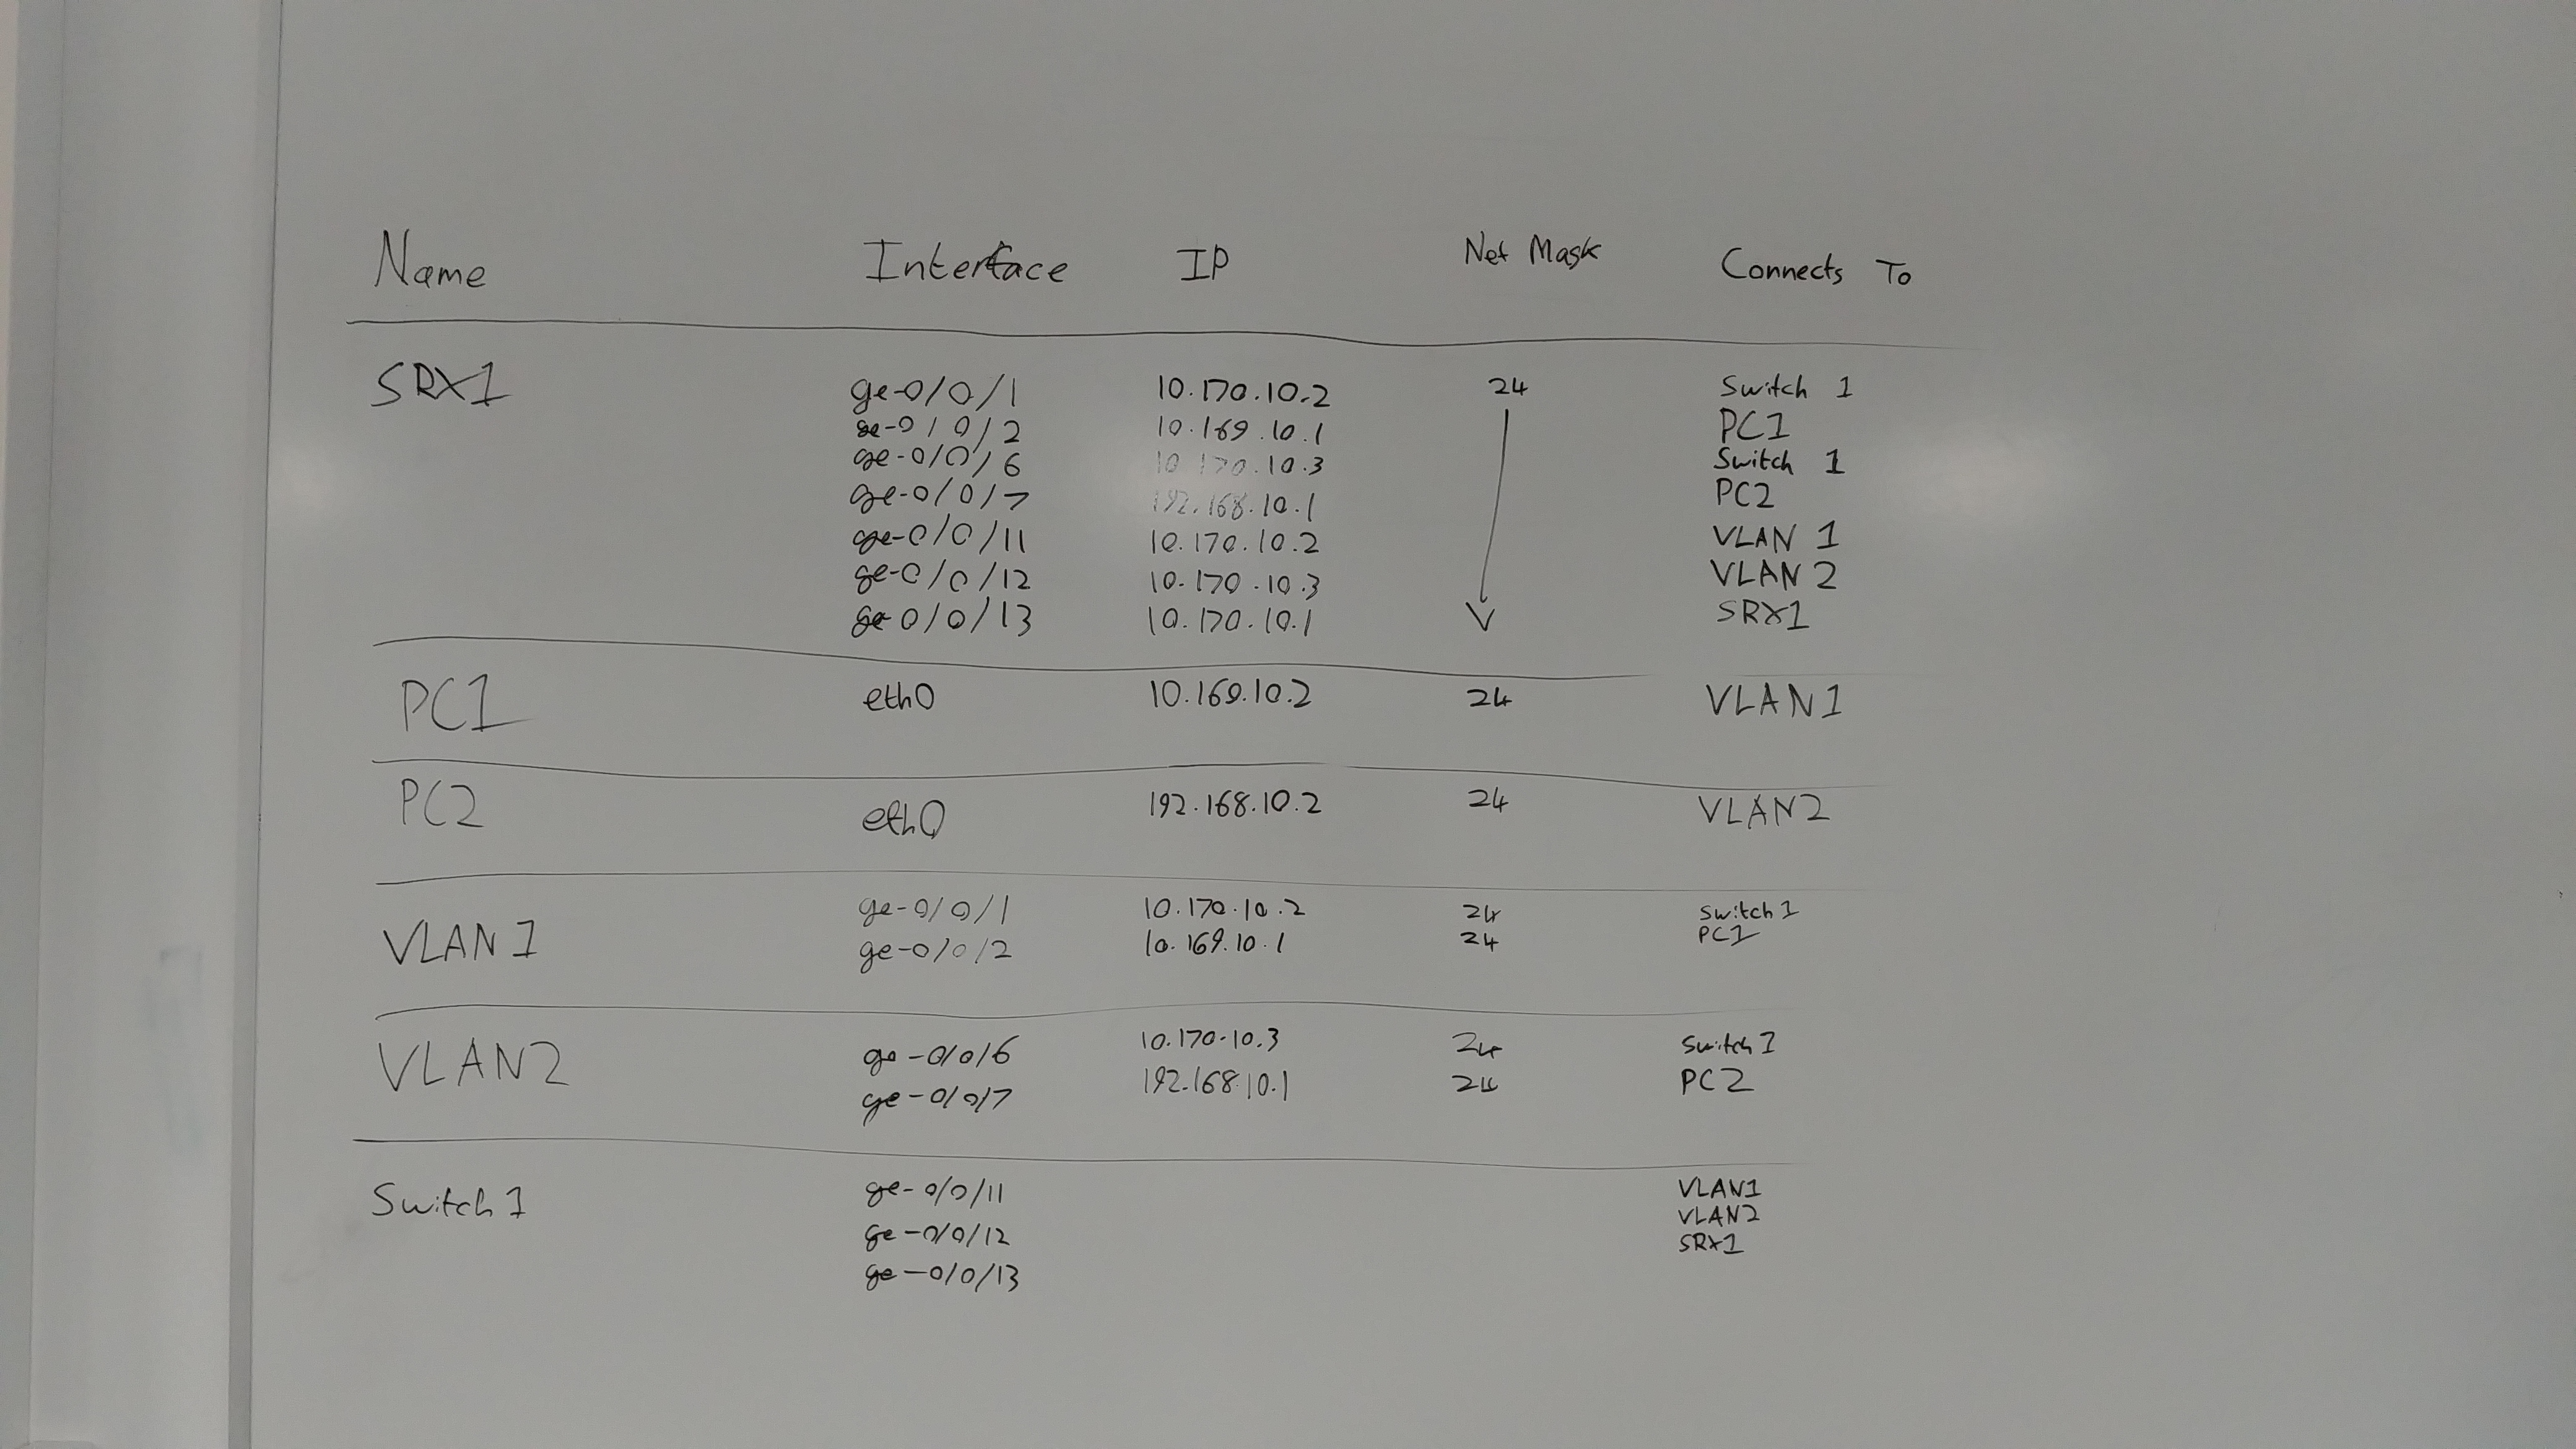 Name Interface IP Net Mask Connects To
SRX1 ge-0/0/1 10.170.10.2 24 Switch 1
ge-0/0/2 10.169.10.1 PC1
ge-0/0/6 10.170.10.3 Switch 1
ge-0/0/7 192.168.10.1 PC2
ge-0/0/11 10.170.10.2 VLAN 1
ge-0/0/12 10.170.10.3 VLAN 2
ge-0/0/13 10.170.10.1 SRX1
PC1 eth0 10.169.10.2 24 VLAN1
PC2 eth0 192.168.10.2 24 VLAN2
VLAN 1 ge-0/0/1 10.170.10.2 24 Switch 1
ge-0/0/2 10.169.10.1 24 PC1
VLAN2 ge-0/0/6 10.170.10.3 24 Switch 1
ge-0/0/7 192.168.10.1 24 PC2
Switch 1 ge-0/0/11 VLAN1
ge-0/0/12 VLAN2
ge-0/0/13 SRX1